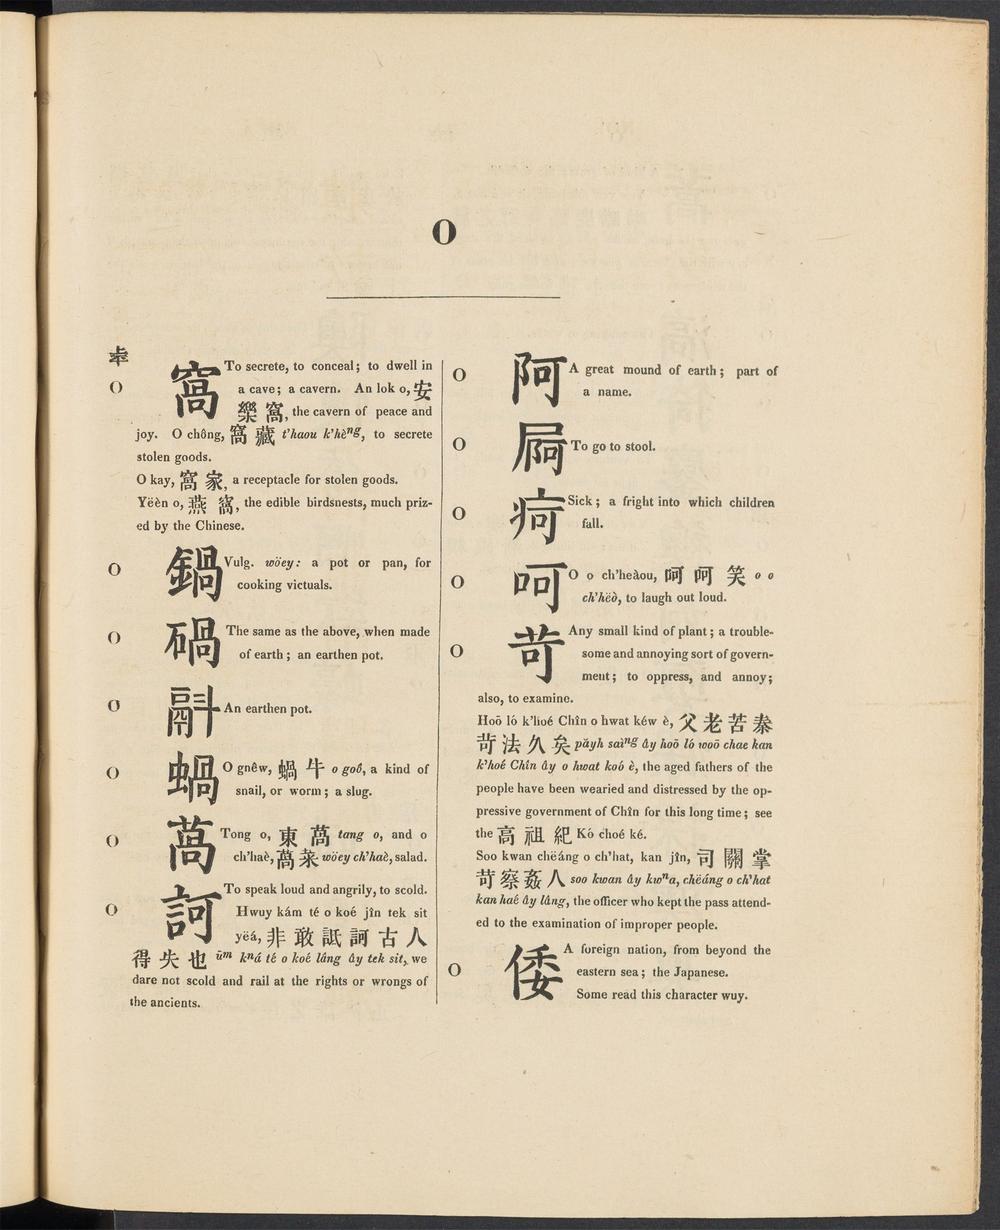 O
O 窩 To secrete, to conceal; to dwell in
a cave; a cavern. An lok o, 安
樂 窩, the cavern of peace and
joy. O chông, 窩 藏 t'haou k'hèng, to secrete
stolen goods.
O kay, 窩 家, a receptacle for stolen goods.
Yëèn o, 燕 窩, the edible birdsnests, much priz-
ed by the Chinese.
O 鍋 Vulg. wöey: a pot or pan, for
cooking victuals.
O 碢 The same as the above, when made
of earth; an earthen pot.
O An earthen pot.
O 蝸 O gnêw, 蝸 牛 o goô, a kind of
snail, or worm; a slug.
O 萵 Tong o, 東 萵 tang o, and o
ch'haè, 萵 菜 wöey ch'haè, salad.
O 訶 To speak loud and angrily, to scold.
Hwuy kám té o koé jîn tek sit
yëá, 非 敢 詆 訶 古 人
得 失 也 ūm kná té o koé lâng ây tek sit, we
dare not scold and rail at the rights or wrongs of
the ancients.
O 阿 A great mound of earth; part of
a name.
O 屙 To go to stool.
O 疴 Sick; a fright into which children
fall.
O 呵 O o ch'heàou, 呵 呵 笑 o o
ch'hëò, to laugh out loud.
O 苛 Any small kind of plant; a trouble-
some and annoying sort of govern-
ment; to oppress, and annoy;
also, to examine.
Hoō ló k'hoé Chîn o hwat kéw è, 父 老 苦 秦
苛 法 久 矣 pāyh saìng ây hoō ló woō chae kan
k'hoé Chîn ây o hwat koó è, the aged fathers of the
people have been wearied and distressed by the op-
pressive government of Chîn for this long time; see
the 高 祖 紀 Kó choé ké.
Soo kwan chëáng o ch'hat, kan jîn, 司 關 掌
苛 察 姦 人 soo kwan ây kwna, chëáng o ch'hat
kan haé ây lâng, the officer who kept the pass attend-
ed to the examination of improper people.
O 倭 A foreign nation, from beyond the
eastern sea; the Japanese.
Some read this character wuy.